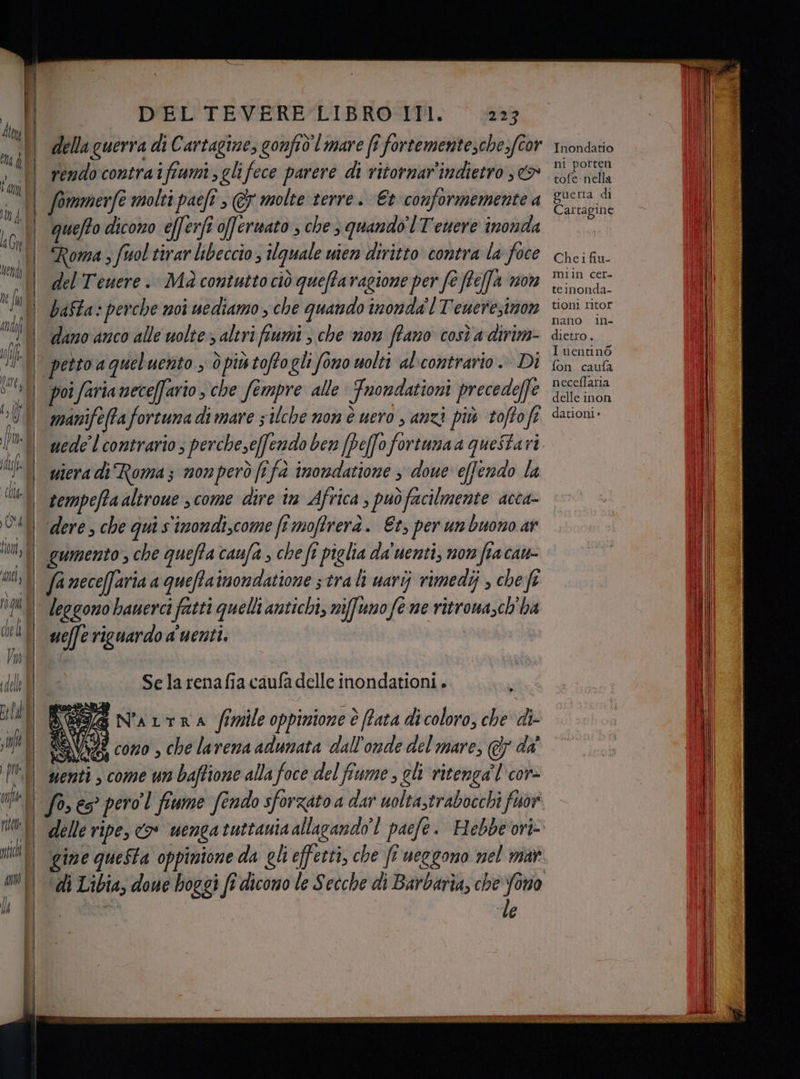 DEL TEVERE LIBRO III. 223
della guerra di Cartagine, gonfiò'l mare ſi fortemente,che,ſcor
rendo contra i fiumi, gli fece parere di ritornar'indietro, &
ſommerſe molti paeſi, & molte terre. Et conformemente a
queſto dicono eſſerſi oſſeruato, che, quando'l Teuere inonda
Roma, ſuol tirar libeccio, ilquale uien diritto contra la foce
del Teuere. Mà contuttociò queſta ragione per ſe ſteſſa non
baſta: perche noi uediamo, che quando inonda'l Teuere,inon
dano anco alle uolte, altri fiumi, che non ſtano così a dirim-
petto a quel uento, ò più toſto gli ſono uolti al contrario. Di
poi ſaria neceſſario, che ſempre alle Inondationi precedeſſe
manifeſta fortuna di mare; ilche non è uero, anzi più toſto ſi
uede'l contrario; perche,eſſendo ben ſpeſſo fortuna a queſta ri
uiera di Roma; non però ſi fà inondatione, doue eſſendo la
tempeſta altroue, come dire in Africa, può facilmente acca-
dere, che qui s'inondi,come ſi moſtrerà. Et, per un buono ar
gumento, che queſta cauſa, che ſi piglia da'uenti, non ſia cau-
ſa neceſſaria a queſta inondatione; tra li uarij rimedij, che ſi
leggono hauerci fatti quelli antichi, niſſuno ſe ne ritroua,ch'ha
ueſſe riguardo a'uenti.
Se la rena ſia cauſa delle inondationi.
N'ALTRA ſimile oppinione è ſtata di coloro, che di-
cono, che la rena adunata dall'onde del mare, & da'
uenti, come un baſtione alla foce del fiume, gli ritenga'l cor-
ſo, es' però'l fiume ſendo sforzato a dar uolta,trabocchi fuor
delle ripe, & uenga tuttauia allagando'l paeſe. Hebbe ori-
gine queſta oppinione da gli effetti, che ſi ueggono nel mar
di Libia, doue hoggi ſi dicono le Secche di Barbaria, che ſono
le
Inondatio
ni porten
toſe nella
guerra di
Cartagine
Che i fiu-
mi in cer-
te inonda-
tioni ritor
nano in-
dietro.
I uenti nõ
ſon cauſa
neceſſaria
delle inon
dationi.